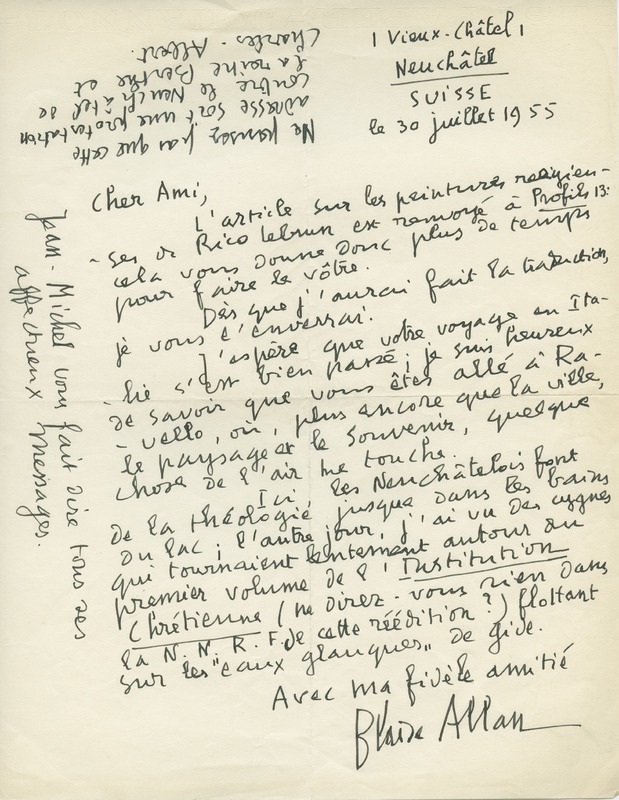 1 Vieux-Châtel 1
Neuchâtel
SUISSE
le 30 juillet 1955
Ne pensez pas que cette
adresse soit une protestation
contre le Neuchâtel de
la reine Berthe et
Charles-Albert.
Cher Ami,
L'article sur les peintures religieu-
-ses de Rico Lebrun est renvoyé à Profils 13.
cela vous donne donc plus de temps
pour faire le vôtre.
Dès que j'aurai fait la traduction,
je vous l'enverrai.
J'espère que votre voyage en Ita-
-lie s'est bien passé; je suis heureux
de savoir que vous êtes allé à Ra-
-vello, où, plus encore que la ville,
le paysage et le souvenir, quelque
chose de l'air me touche.
Ici, les Neuchâtelois font
de la théologie jusque dans les bains
du lac; l'autre jour, j'ai vu des cygnes
qui tournaient lentement autour du
premier volume de l'Institution
Chrétienne (ne direz-vous rien dans
la N.N.R.F. de cette réédition?) flottant
sur les "eaux glauques" de Gide.
Avec ma fidèle amitié
Blaise Allan
Jean-Michel vous fait dire tous ses
affectueux messages.